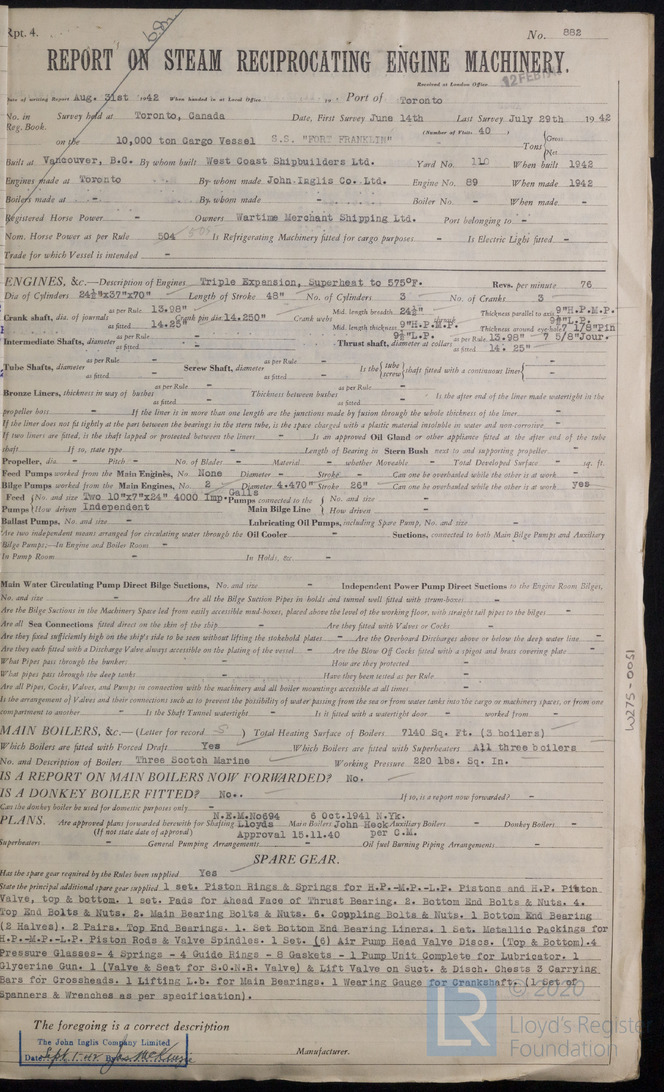 Rpt. 4.
No. 882
REPORT ON STEAM RECIPROCATING ENGINE MACHINERY.
Received at London Office 12 FEB
Date of writing Report Aug. 31st 1942 When handed in at Local Office 19 Port of Toronto
No. in Reg. Book. Survey held at Toronto, Canada Date, First Survey June 14th Last Survey July 29th 1942
(Number of Visits 40 )
on the 10,000 ton Cargo Vessel S.S. "FORT FRANKLIN" Tons { Gross Net
Built at Vancouver, B.C. By whom built West Coast Shipbuilders Ltd. Yard No. 110 When built 1942
Engines made at Toronto By whom made John Inglis Co. Ltd. Engine No. 89 When made 1942
Boilers made at - By whom made - Boiler No. - When made -
Registered Horse Power - Owners Wartime Merchant Shipping Ltd. Port belonging to -
Nom. Horse Power as per Rule 504 Is Refrigerating Machinery fitted for cargo purposes - Is Electric Light fitted -
Trade for which Vessel is intended -
ENGINES, &c.—Description of Engines Triple Expansion, Superheat to 575°F. Revs. per minute 76
Dia of Cylinders 24½"x37"x70" Length of Stroke 48" No. of Cylinders 3 No. of Cranks 3
Crank shaft, dia. of journals as per Rule 13.98" as fitted 14.25" Crank pin dia. 14.250" Crank webs Mid. length breadth 24½" Mid. length thickness 9"H.P.M.P. 9½"L.P. Thickness parallel to axis 9"H.P.M.P. 9½"L.P. Thickness around eye-hole 7 1/8"Pin 7 5/8"Jour.
Intermediate Shafts, diameter as per Rule - as fitted - Thrust shaft, diameter at collars as per Rule 13.98" as fitted 14.25"
Tube Shafts, diameter as per Rule - as fitted - Screw Shaft, diameter as per Rule - as fitted - Is the { tube screw } shaft fitted with a continuous liner { -
Bronze Liners, thickness in way of bushes as per Rule - as fitted - Thickness between bushes as per Rule - as fitted - Is the after end of the liner made watertight in the
propeller boss - If the liner is in more than one length are the junctions made by fusion through the whole thickness of the liner -
If the liner does not fit tightly at the part between the bearings in the stern tube, is the space charged with a plastic material insoluble in water and non-corrosive -
If two liners are fitted, is the shaft lapped or protected between the liners - Is an approved Oil Gland or other appliance fitted at the after end of the tube
shaft - If so, state type - Length of Bearing in Stern Bush next to and supporting propeller -
Propeller, dia. - Pitch - No. of Blades - Material - whether Moveable - Total Developed Surface - sq. ft.
Feed Pumps worked from the Main Engines, No. None Diameter - Stroke - Can one be overhauled while the other is at work -
Bilge Pumps worked from the Main Engines, No. 2 Diameter 4.470" Stroke 26" Can one be overhauled while the other is at work yes
Feed Pumps { No. and size Two 10"x7"x24" 4000 Imp. Gall's How driven Independent Pumps connected to the Main Bilge Line { No. and size - How driven -
Ballast Pumps, No. and size - Lubricating Oil Pumps, including Spare Pump, No. and size -
Are two independent means arranged for circulating water through the Oil Cooler - Suctions, connected to both Main Bilge Pumps and Auxiliary
Bilge Pumps;—In Engine and Boiler Room -
In Pump Room - In Holds, &c. -
Main Water Circulating Pump Direct Bilge Suctions, No. and size - Independent Power Pump Direct Suctions to the Engine Room Bilges,
No. and size - Are all the Bilge Suction Pipes in holds and tunnel well fitted with strum-boxes -
Are the Bilge Suctions in the Machinery Space led from easily accessible mud-boxes, placed above the level of the working floor, with straight tail pipes to the bilges -
Are all Sea Connections fitted direct on the skin of the ship - Are they fitted with Valves or Cocks -
Are they fixed sufficiently high on the ship's side to be seen without lifting the stokehold plates - Are the Overboard Discharges above or below the deep water line -
Are they each fitted with a Discharge Valve always accessible on the plating of the vessel - Are the Blow Off Cocks fitted with a spigot and brass covering plate -
What Pipes pass through the bunkers - How are they protected -
What pipes pass through the deep tanks - Have they been tested as per Rule -
Are all Pipes, Cocks, Valves, and Pumps in connection with the machinery and all boiler mountings accessible at all times -
Is the arrangement of Valves and their connections such as to prevent the possibility of water passing from the sea or from water tanks into the cargo or machinery spaces, or from one
compartment to another - Is the Shaft Tunnel watertight - Is it fitted with a watertight door - worked from -
MAIN BOILERS, &c.—(Letter for record S ) Total Heating Surface of Boilers 7140 Sq. Ft. (3 boilers)
Which Boilers are fitted with Forced Draft Yes Which Boilers are fitted with Superheaters All three boilers
No. and Description of Boilers Three Scotch Marine Working Pressure 220 lbs. Sq. In.
IS A REPORT ON MAIN BOILERS NOW FORWARDED? No.
IS A DONKEY BOILER FITTED? No.. If so, is a report now forwarded? -
Can the donkey boiler be used for domestic purposes only -
PLANS. Are approved plans forwarded herewith for Shafting N.E.M.No694 Lloyds Approval 15.11.40 Main Boilers 6 Oct.1941 N.Yk. John Heck per C.M. Auxiliary Boilers - Donkey Boilers -
(If not state date of approval)
Superheaters - General Pumping Arrangements - Oil fuel Burning Piping Arrangements -
SPARE GEAR.
Has the spare gear required by the Rules been supplied Yes
State the principal additional spare gear supplied 1 set. Piston Rings & Springs for H.P.-M.P.-L.P. Pistons and H.P. Piston
Valve, top & bottom. 1 set. Pads for Ahead Face of Thrust Bearing. 2. Bottom End Bolts & Nuts. 4.
Top End Bolts & Nuts. 2. Main Bearing Bolts & Nuts. 6. Coupling Bolts & Nuts. 1 Bottom End Bearing
(2 Halves). 2 Pairs. Top End Bearings. 1. Set Bottom End Bearing Liners. 1 Set. Metallic Packings for
H.P.-M.P.-L.P. Piston Rods & Valve Spindles. 1 Set. (6) Air Pump Head Valve Discs. (Top & Bottom).4
Pressure Glasses- 4 Springs - 4 Guide Rings - 8 Gaskets - 1 Pump Unit Complete for Lubricator. 1
Glycerine Gun. 1 (Valve & Seat for S.O.N.R. Valve) & Lift Valve on Suct. & Disch. Chests 3 Carrying
Bars for Crossheads. 1 Lifting L.b. for Main Bearings. 1 Wearing Gauge for Crankshaft. (1 Set of
Spanners & Wrenches as per specification).
The foregoing is a correct description
The John Inglis Company Limited
Date Sept 1-42 By Jas McKenzie
Manufacturer.
W275-0051
© 2020
LR
Lloyd's Register
Foundation